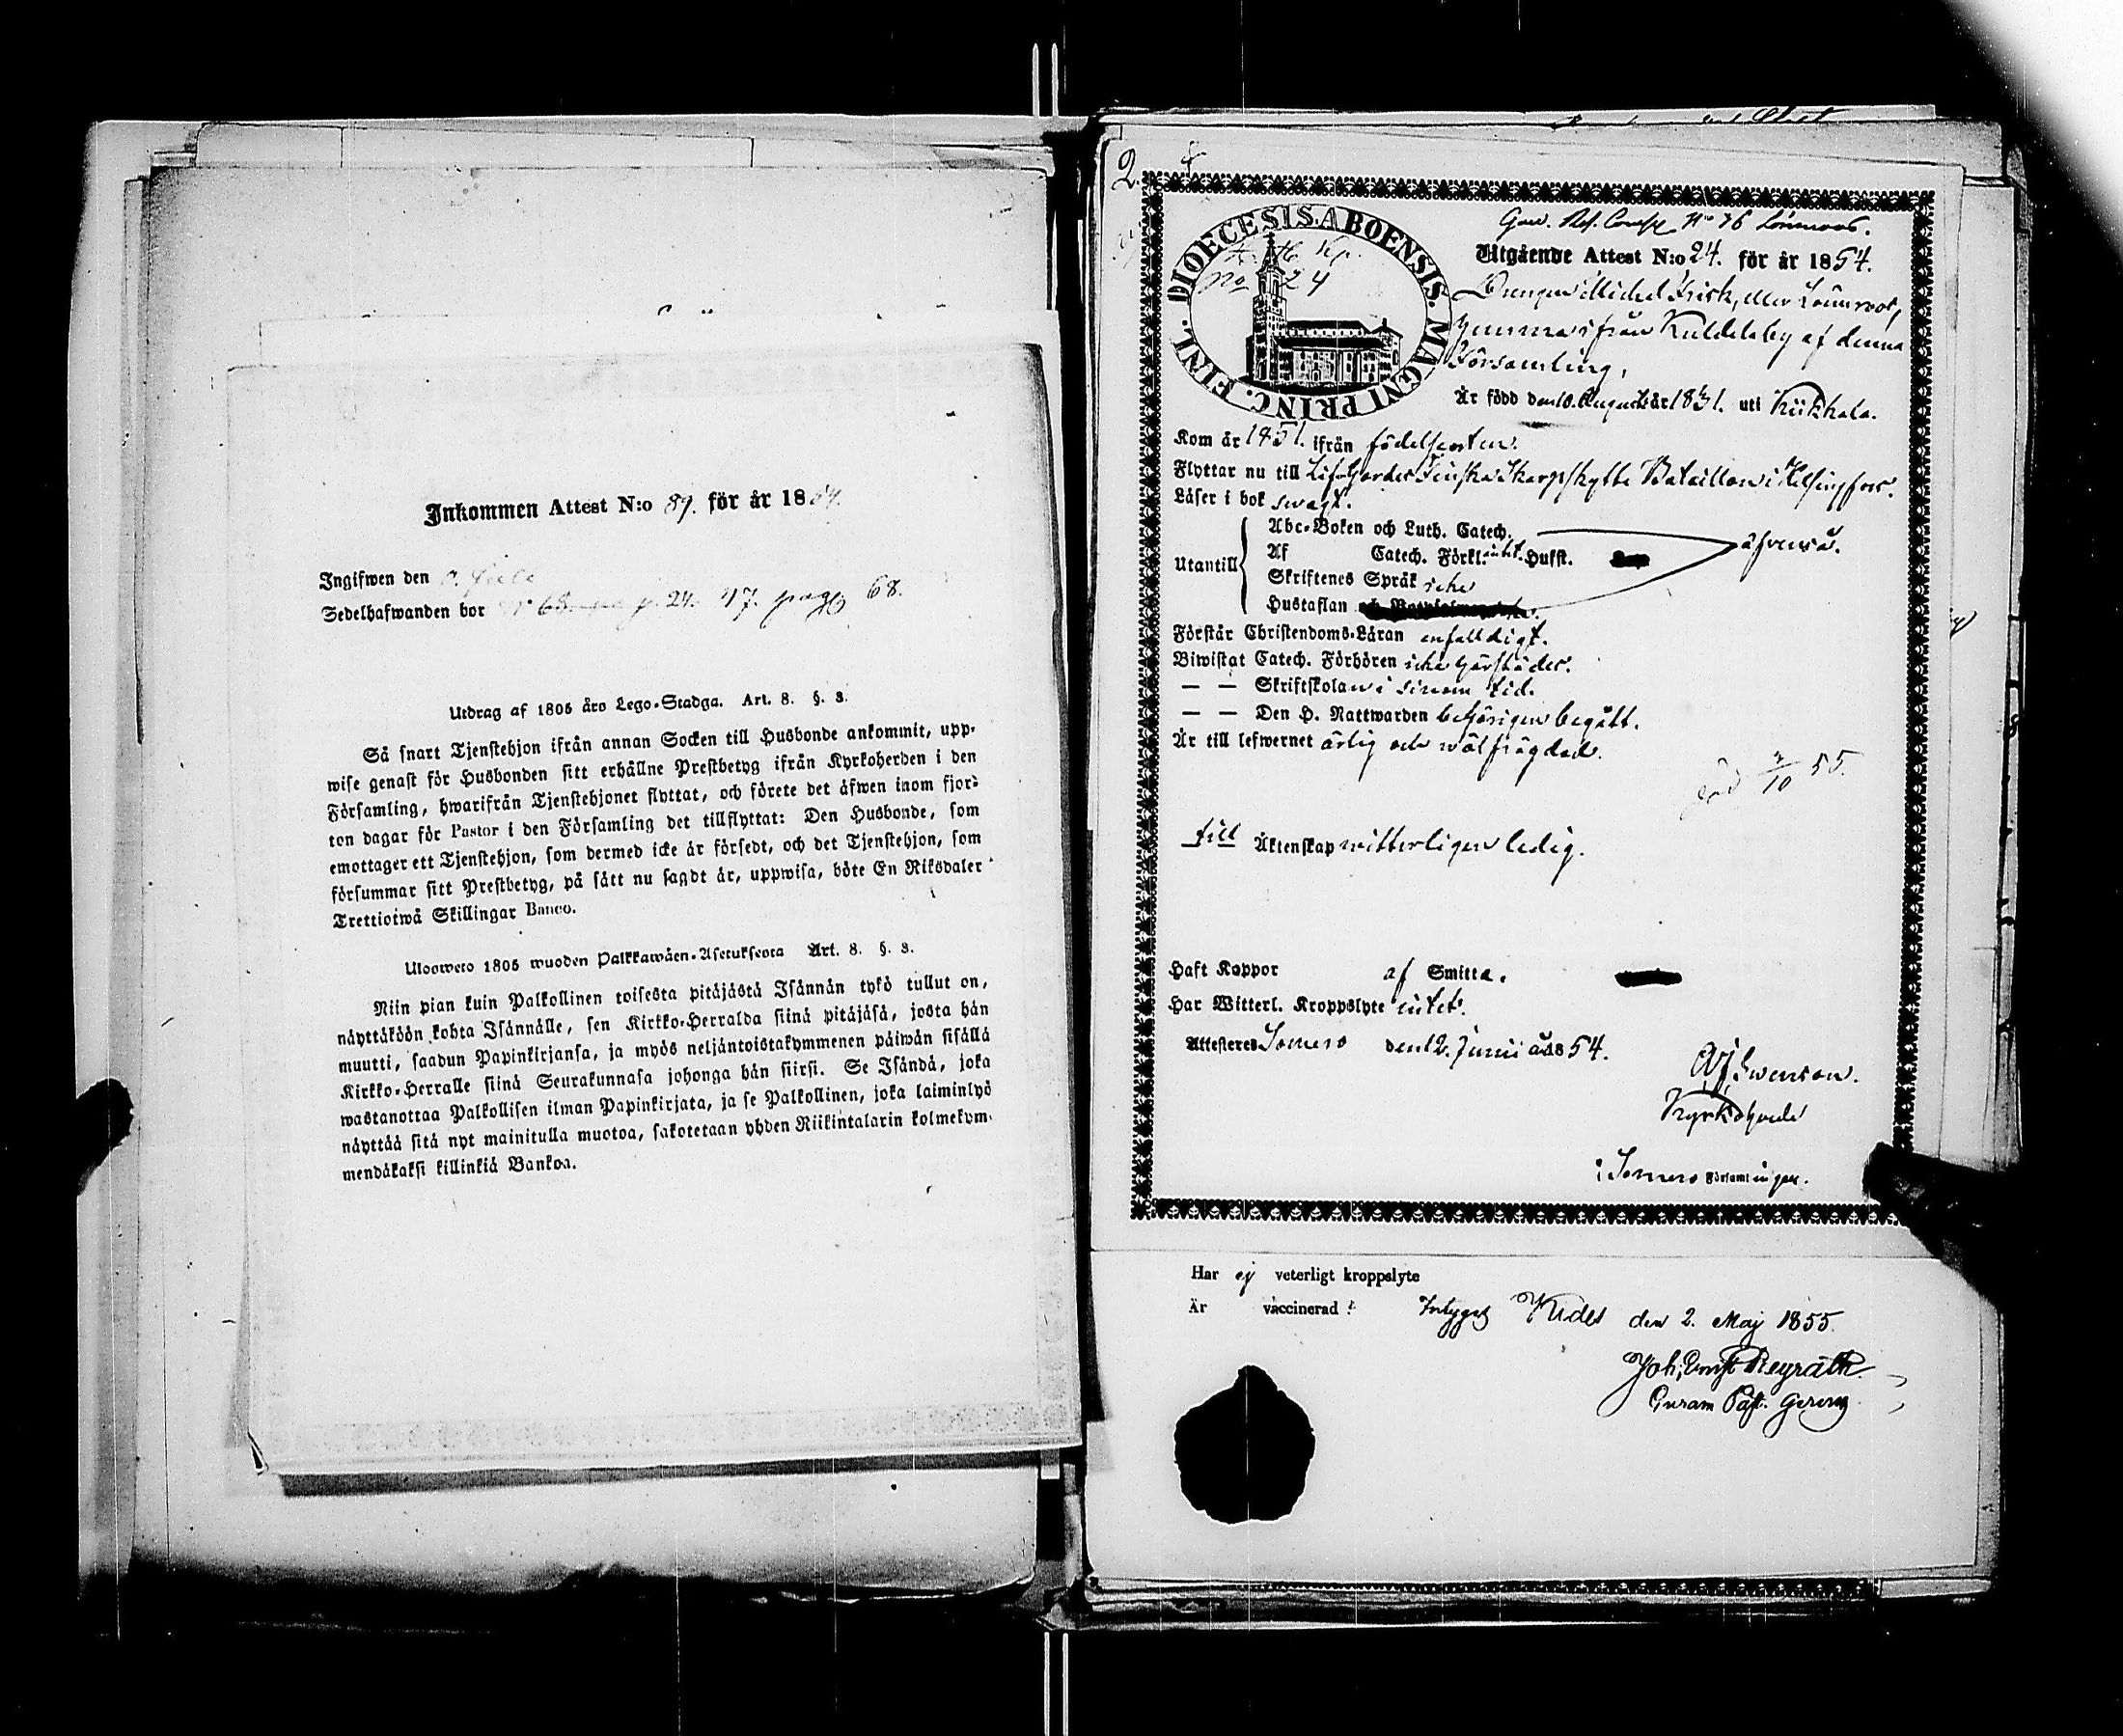 Inkommen Attest N:o 89. för år 1854.
Ingifwen den
Sedelhafwanden bor 68.
Utdrag af 1805 års Lego-Stadga. Art. 8. §. 3.
Så snart Tjenstehjon ifrån annan Socken till Husbonde ankommit, upp-
wise genast för Husbonden sitt erhållne Prestbetyg ifrån Kyrkoherden i den
Församling, hwarifrån Tjenstehjonet flyttat, och förete det äfwen inom fjor-
ton dagar för Pastor i den Församling det tillflyttat: Den Husbonde, som
emottager ett Tjenstehjon, som dermed icke är försedt, och det Tjenstehjon, som
försummar sitt Prestbetyg, på sätt nu sagdt är, uppwisa, böte En Riksdaler
Trettiotwå Skillingar Banco.
Ulosweto 1805 wuoden Palkkawäen-Asetuksesta Art. 8. §. 3.
Niin pian kuin Palkollinen toisesta pitäjästä Isännän tykö tullut on,
näyttäköön kohta Isännälle, sen Kirkko-Herralda siinä pitäjäsä, josta hän
muutti, saadun Papinkirjansa, ja myös neljäntoistakymmenen päiwän sisällä
Kirkko-Herralle siinä Seurakunnasa johonga hän siirsi. Se Isändä, joka
wastanottaa Palkollisen ilman Papinkirjata, ja se Palkollinen, joka laiminlyö
näyttää sitä nyt mainitulla muotoa, sakotetaan yhden Riikintalarin kolmekym-
mendäkaksi killinkiä Bankoa.
2
No 24
DIOECESIS. ABOENSIS. MAGNI PRINC. FINL.
N:o 76 Lönnroos.
Utgående Attest N:o 24. för år 1854.
Drengen Michel Frisk, eller Lönnroos,
ifrån Kuldelaby af denna
Församling,
Är född den 10. Augusti år 1831. uti Kiikkala.
Kom år 1851. ifrån födelseorten.
Flyttar nu till Lif-Gardes Finska Skarpskytte Bataillon i Helsingfors.
Läser i bok swagt.
Utantill
Abc-Boken och Luth. Catech.
Af Catech. Förkl. intet. Hufst.
Skriftenes Språk icke
Hustaflan
äfwenså.
Förstår Christendoms-Läran enfalldigt.
Biwistat Catech. Förhören icke härstädes.
— — Skriftskolan i sinom tid.
— — Den H. Nattwarden behörigen begått.
Är till lefwernet ärlig och wälfrägdad.
död 7/10 55.
till Äktenskap witterligen ledig.
Haft Koppor af Smitta.
Har Witterl. Kroppslyte intet.
Attesteras Somero den 12. Junii år 1854.
Swenson.
Kyrkoherde
i Somero Församlingar.
Har ej veterligt kroppslyte
Är vaccinerad: Intygas Kides den 2. Maj 1855.
Joh. Ernst Neyräth
Past. Gerens